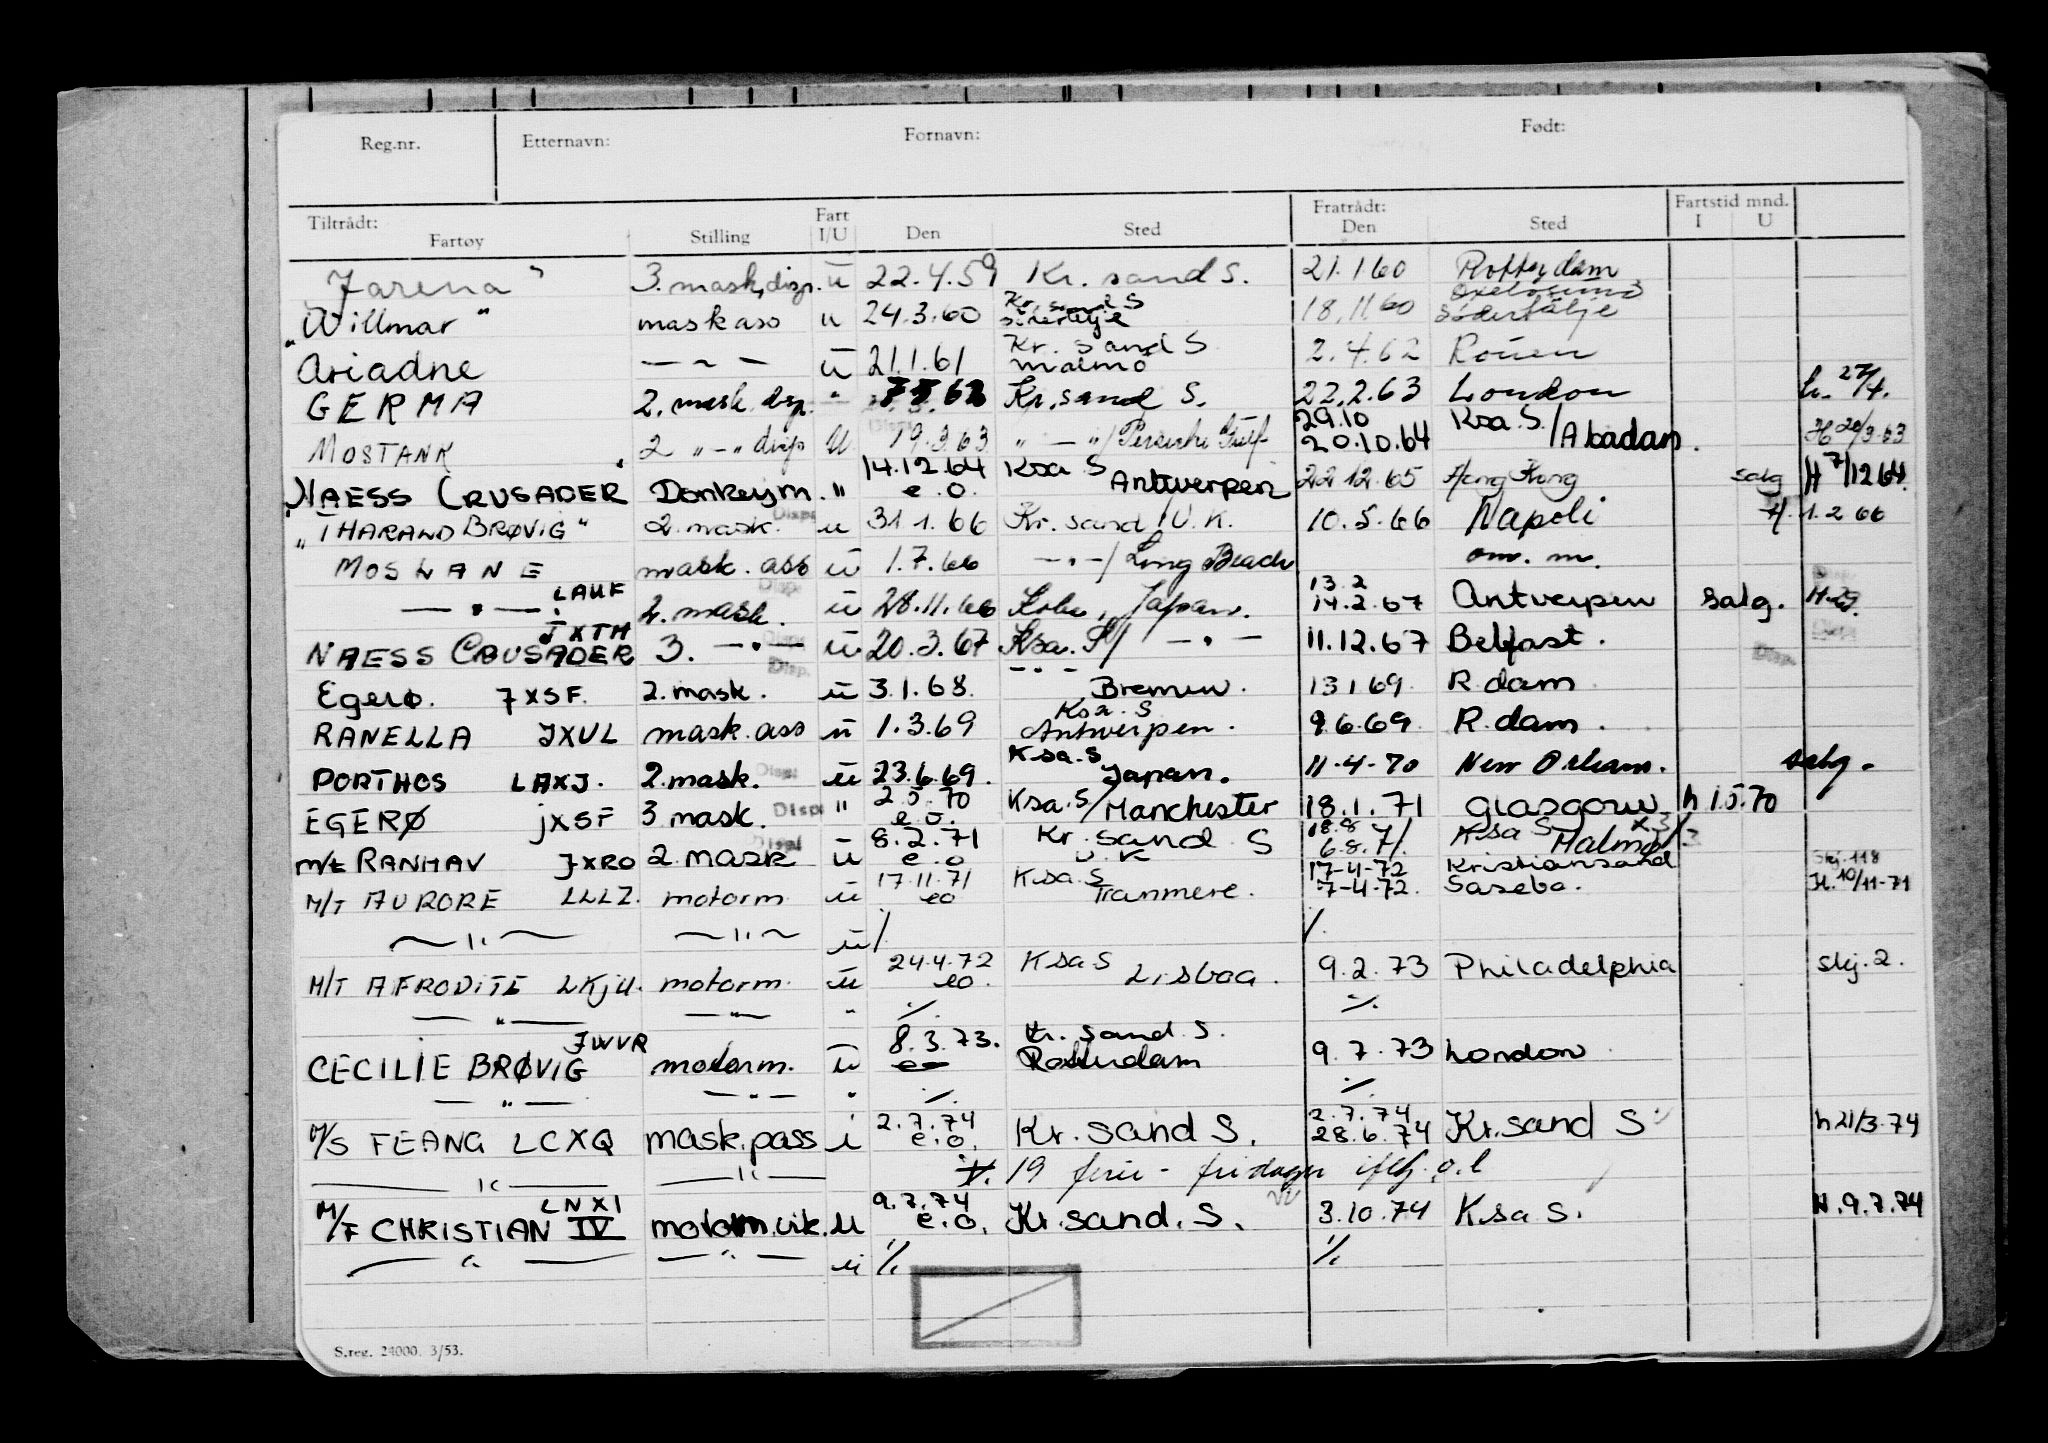 Reg.nr. Etternavn: Fornavn: Født:
Tiltrådt: Fratrådt: Fartstid mnd.
Fartøy Stilling Fart I/U Den Sted Den Sted I U
"Jarena" 3. mask, disp. u 22.4.59 Kr. sand S. 21.1 60 Rotterdam
"Willmar" mask ass u 24.3.60 Kr. sand S Södertelje 18.11 60 Oxelösund Södertälje
Ariadne — " — u 21.1.61 Kr. sand S Malmö 2.4.62 Rouen
GERMA 2. mask. disp. " 62 Kr. sand S. 22.2.63 London h. 27/4.
MOSTANK 2 " - " disp U 19.3.63 " — " / Persiske Gulf 29.10 20.10.64 Ksa. S. / Abadan. H 20/3 63
NAESS CRUSADER Donkeym. " 14.12.64 e.o. Ksa S Antwerpen 22 12.65 Hong Kong salg H 7/12 64.
"THARALD BRØVIG" 2. mask. Disp u 31 1.66 Kr. sand / U.K. 10.5.66 Napoli H. 1.2 66
MOSLANE mask. ass u 1.7.66 — " — / Long Beach om. m.
— " — LAUF 2. mask. Disp. u 28.11.66 Kobe, Japan. 13.2 14.2.67 Antwerpen salg. H.29
NAESS CRUSADER JXTH 3. — " — Disp. u 20.3.67 Ksa. S / — " — 11.12.67 Belfast. Disp.
Egerø. JXSF. 2. mask. Disp. u 3.1.68. — " — Bremen. 13 1 69. R.dam
RANELLA JXUL mask. ass u 1.3.69 Ksa. S Antwerpen. 9 6.69. R. dam.
PORTHOS LAXJ. 2. mask. Disp. u 23.6.69. Ksa. S Japan. 11-4-70 New Orleans. salg.
EGERØ JXSF 3 mask. Disp " 2 5.70 e.o. Ksa. S / Manchester 18.1.71 Glasgow h 1.5.70
m/t RANHAV JXRO 2. mask Disp u 8.2.71 e.o Kr. sand S U.K 18.8 6.8.71. Ksa S Malmø
M/T AURORE LLLZ. motorm. u 17.11.71 eo Ksa. S Tranmere. 17-4-72 7-4-72. Kristiansand Sasebo. Skj. 118 H. 10/11-71
— " — — " — u % %
M/T AFRODITE LKJU. motorm. u 24.4.72 eo. Ksa S Lisboa. 9.2.73 Philadelphia Skj. 2.
— " — — " — " % %
CECILIE BRØVIG JWVR motorm. u 8.3.73. eo Kr. sand. S. Rotterdam 9.7.73 London
— " — — " — " % %
M/S FEANG LCXQ mask. pass i 2.7.74 e.o. Kr. sand S. 2.7.74 28.6.74 Kr. sand S h 21/3.74
— " — — " — 19 ferie - fridager iflg. o.l
M/F CHRISTIAN IV LNXI motorm. vik. U 9.7.74 e.o. Kr. sand. S. 3.10.74 Ksa S. H. 9.7.74
— " — — " — u % %
S.reg. 24000. 3/53.